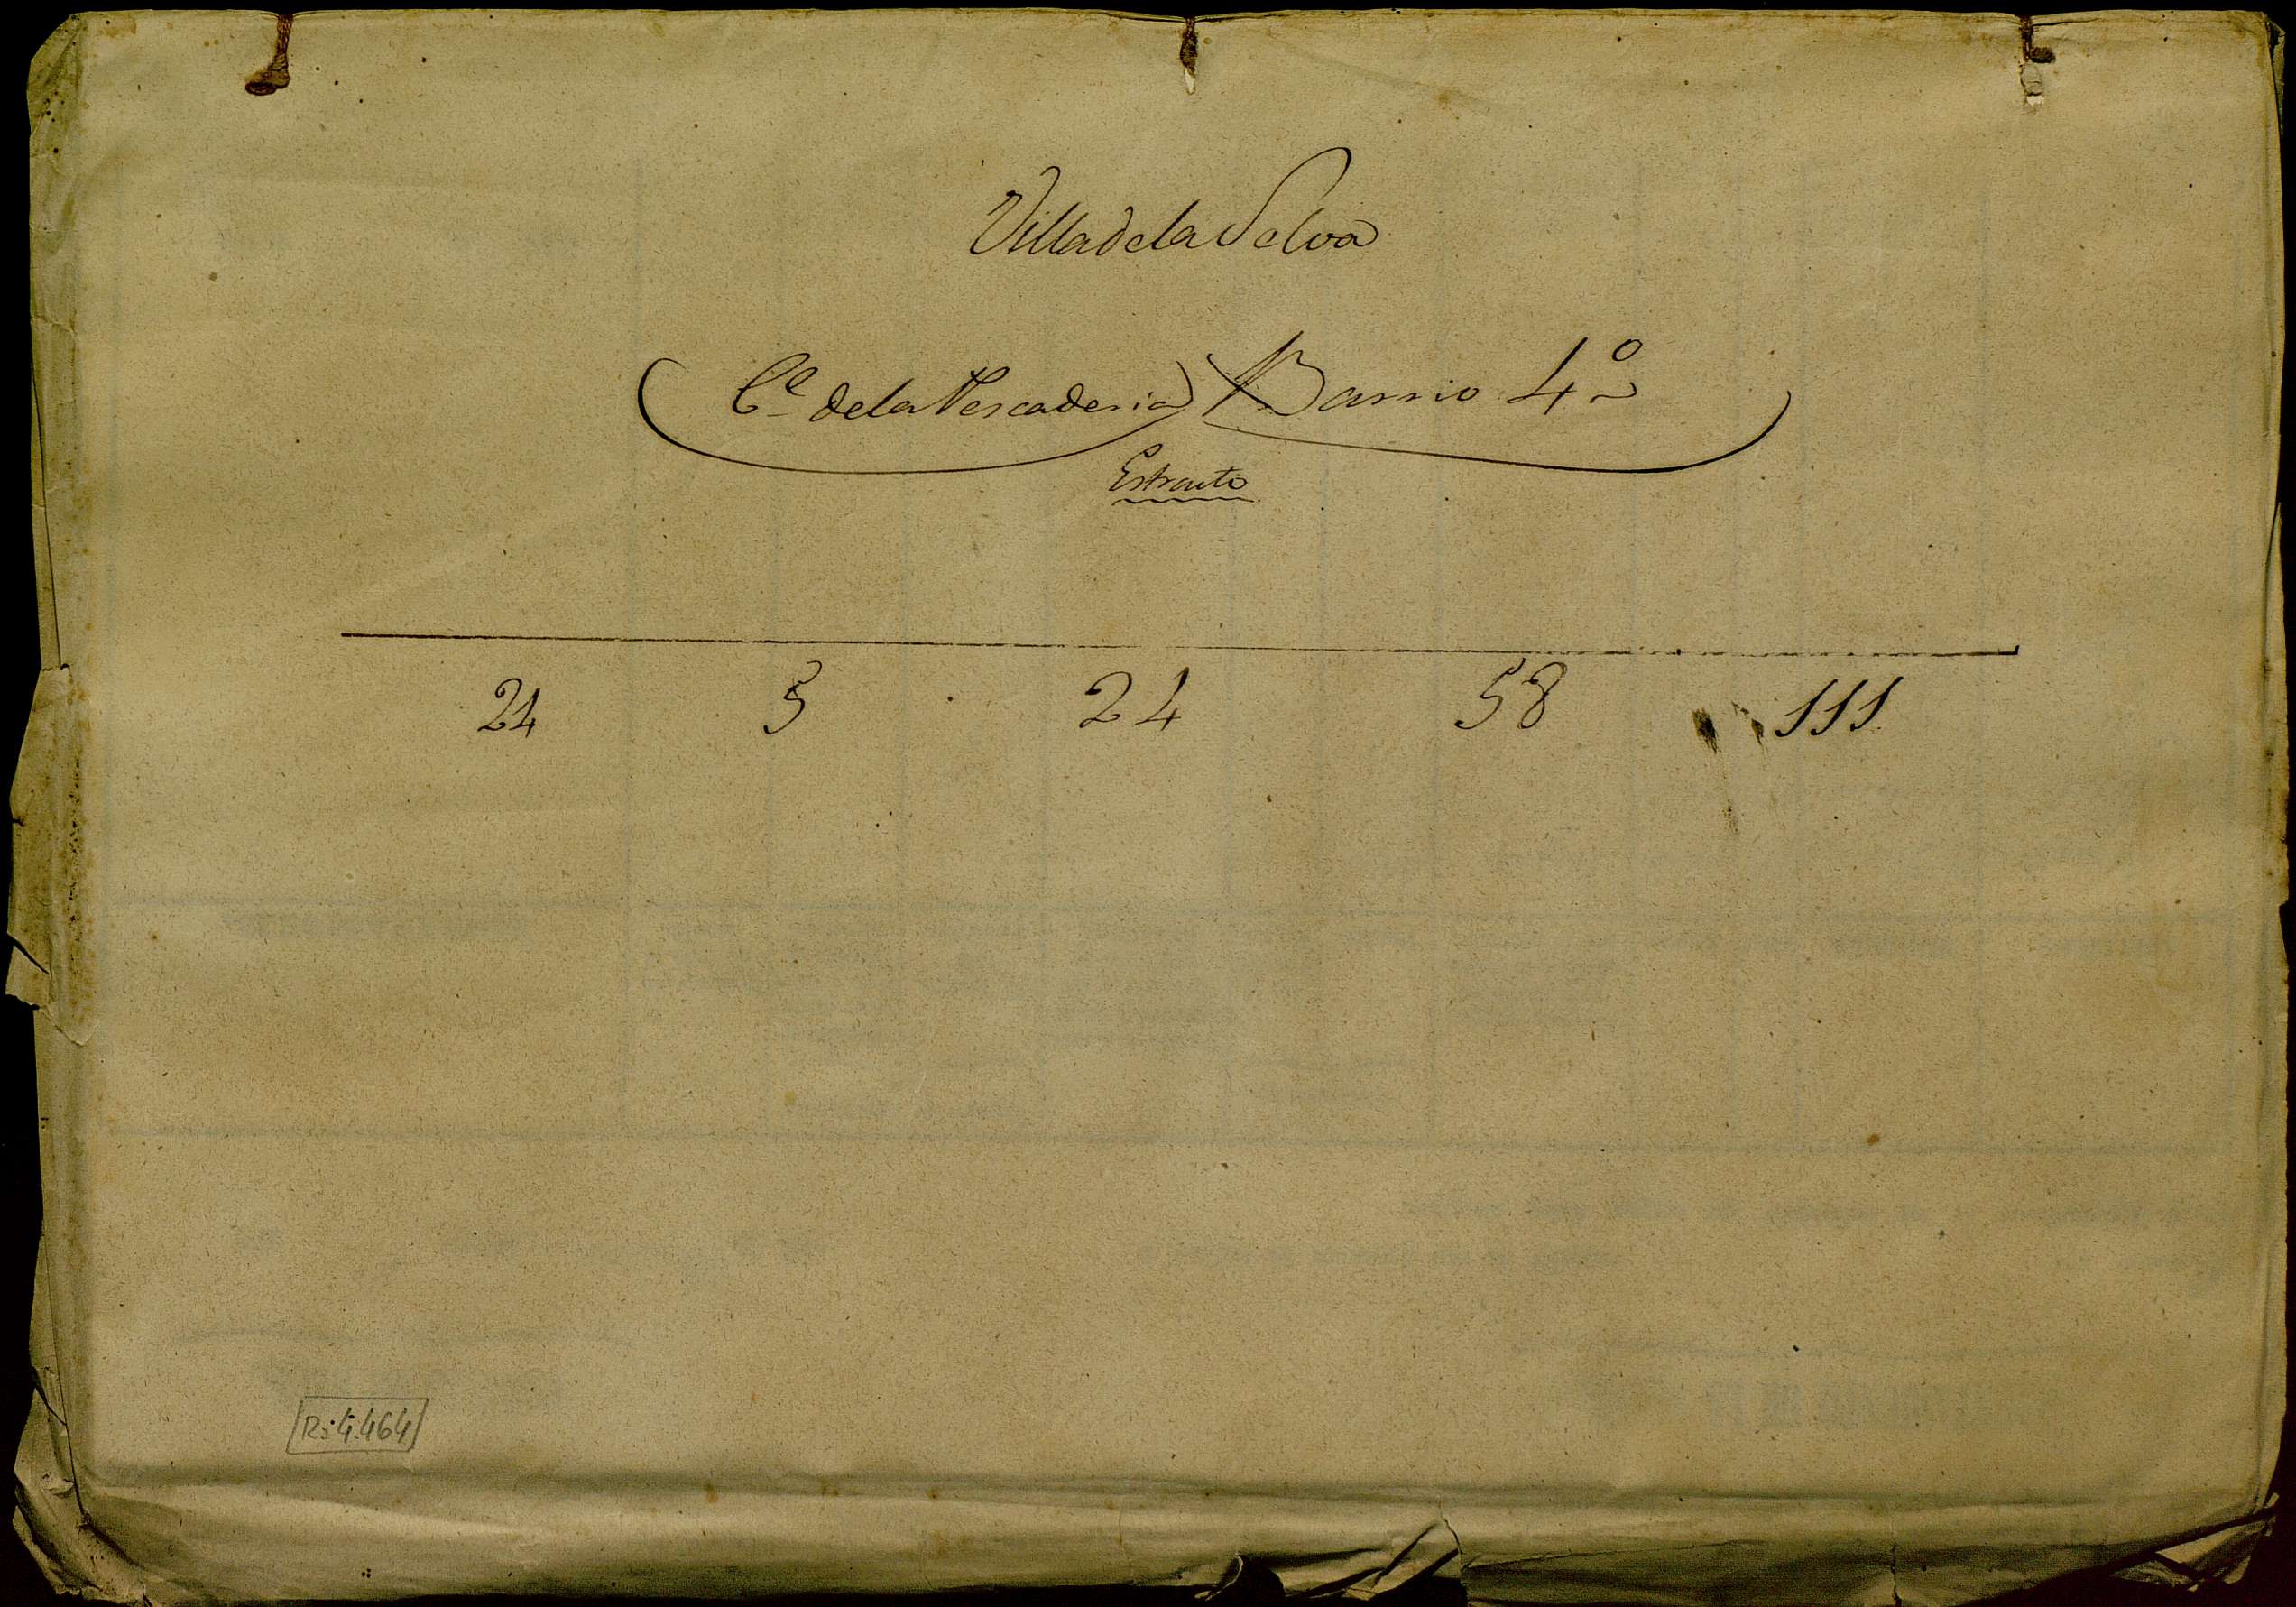 Villa de la Selva
Cᵉ de la Pescaderia) Barrio 4º
Estracto
24 5 24 58 111
R:4.464